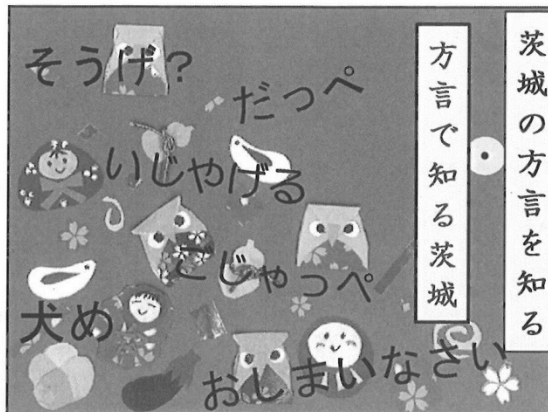 茨城の方言を知る
方言で知る茨城
そうげ？
だっぺ
いじゃける
ごじゃっぺ
犬め
おしまいなさい